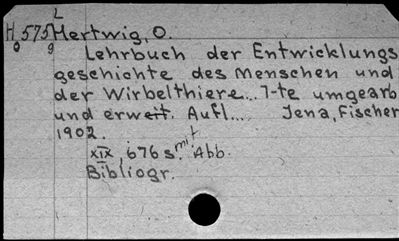 L
H 575 Hertwig, O.
o 9
Lehrbuch der Entwicklungs
geschichte des Menschen und
der Wirbelthiere... 7-te umgearb
und erweit. Aufl.... Jena, Fischer
1902.
XIX, 676 s. mit Abb.
Bibliogr.